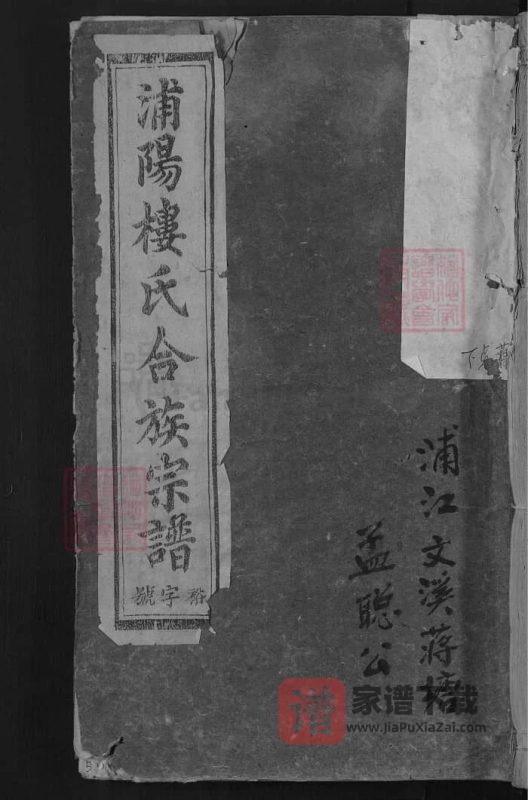 浦陽樓氏合族宗譜
字號
浦江文溪蔣
孟聰公
谱
家谱下载
www.JiaPuXiaZai.com